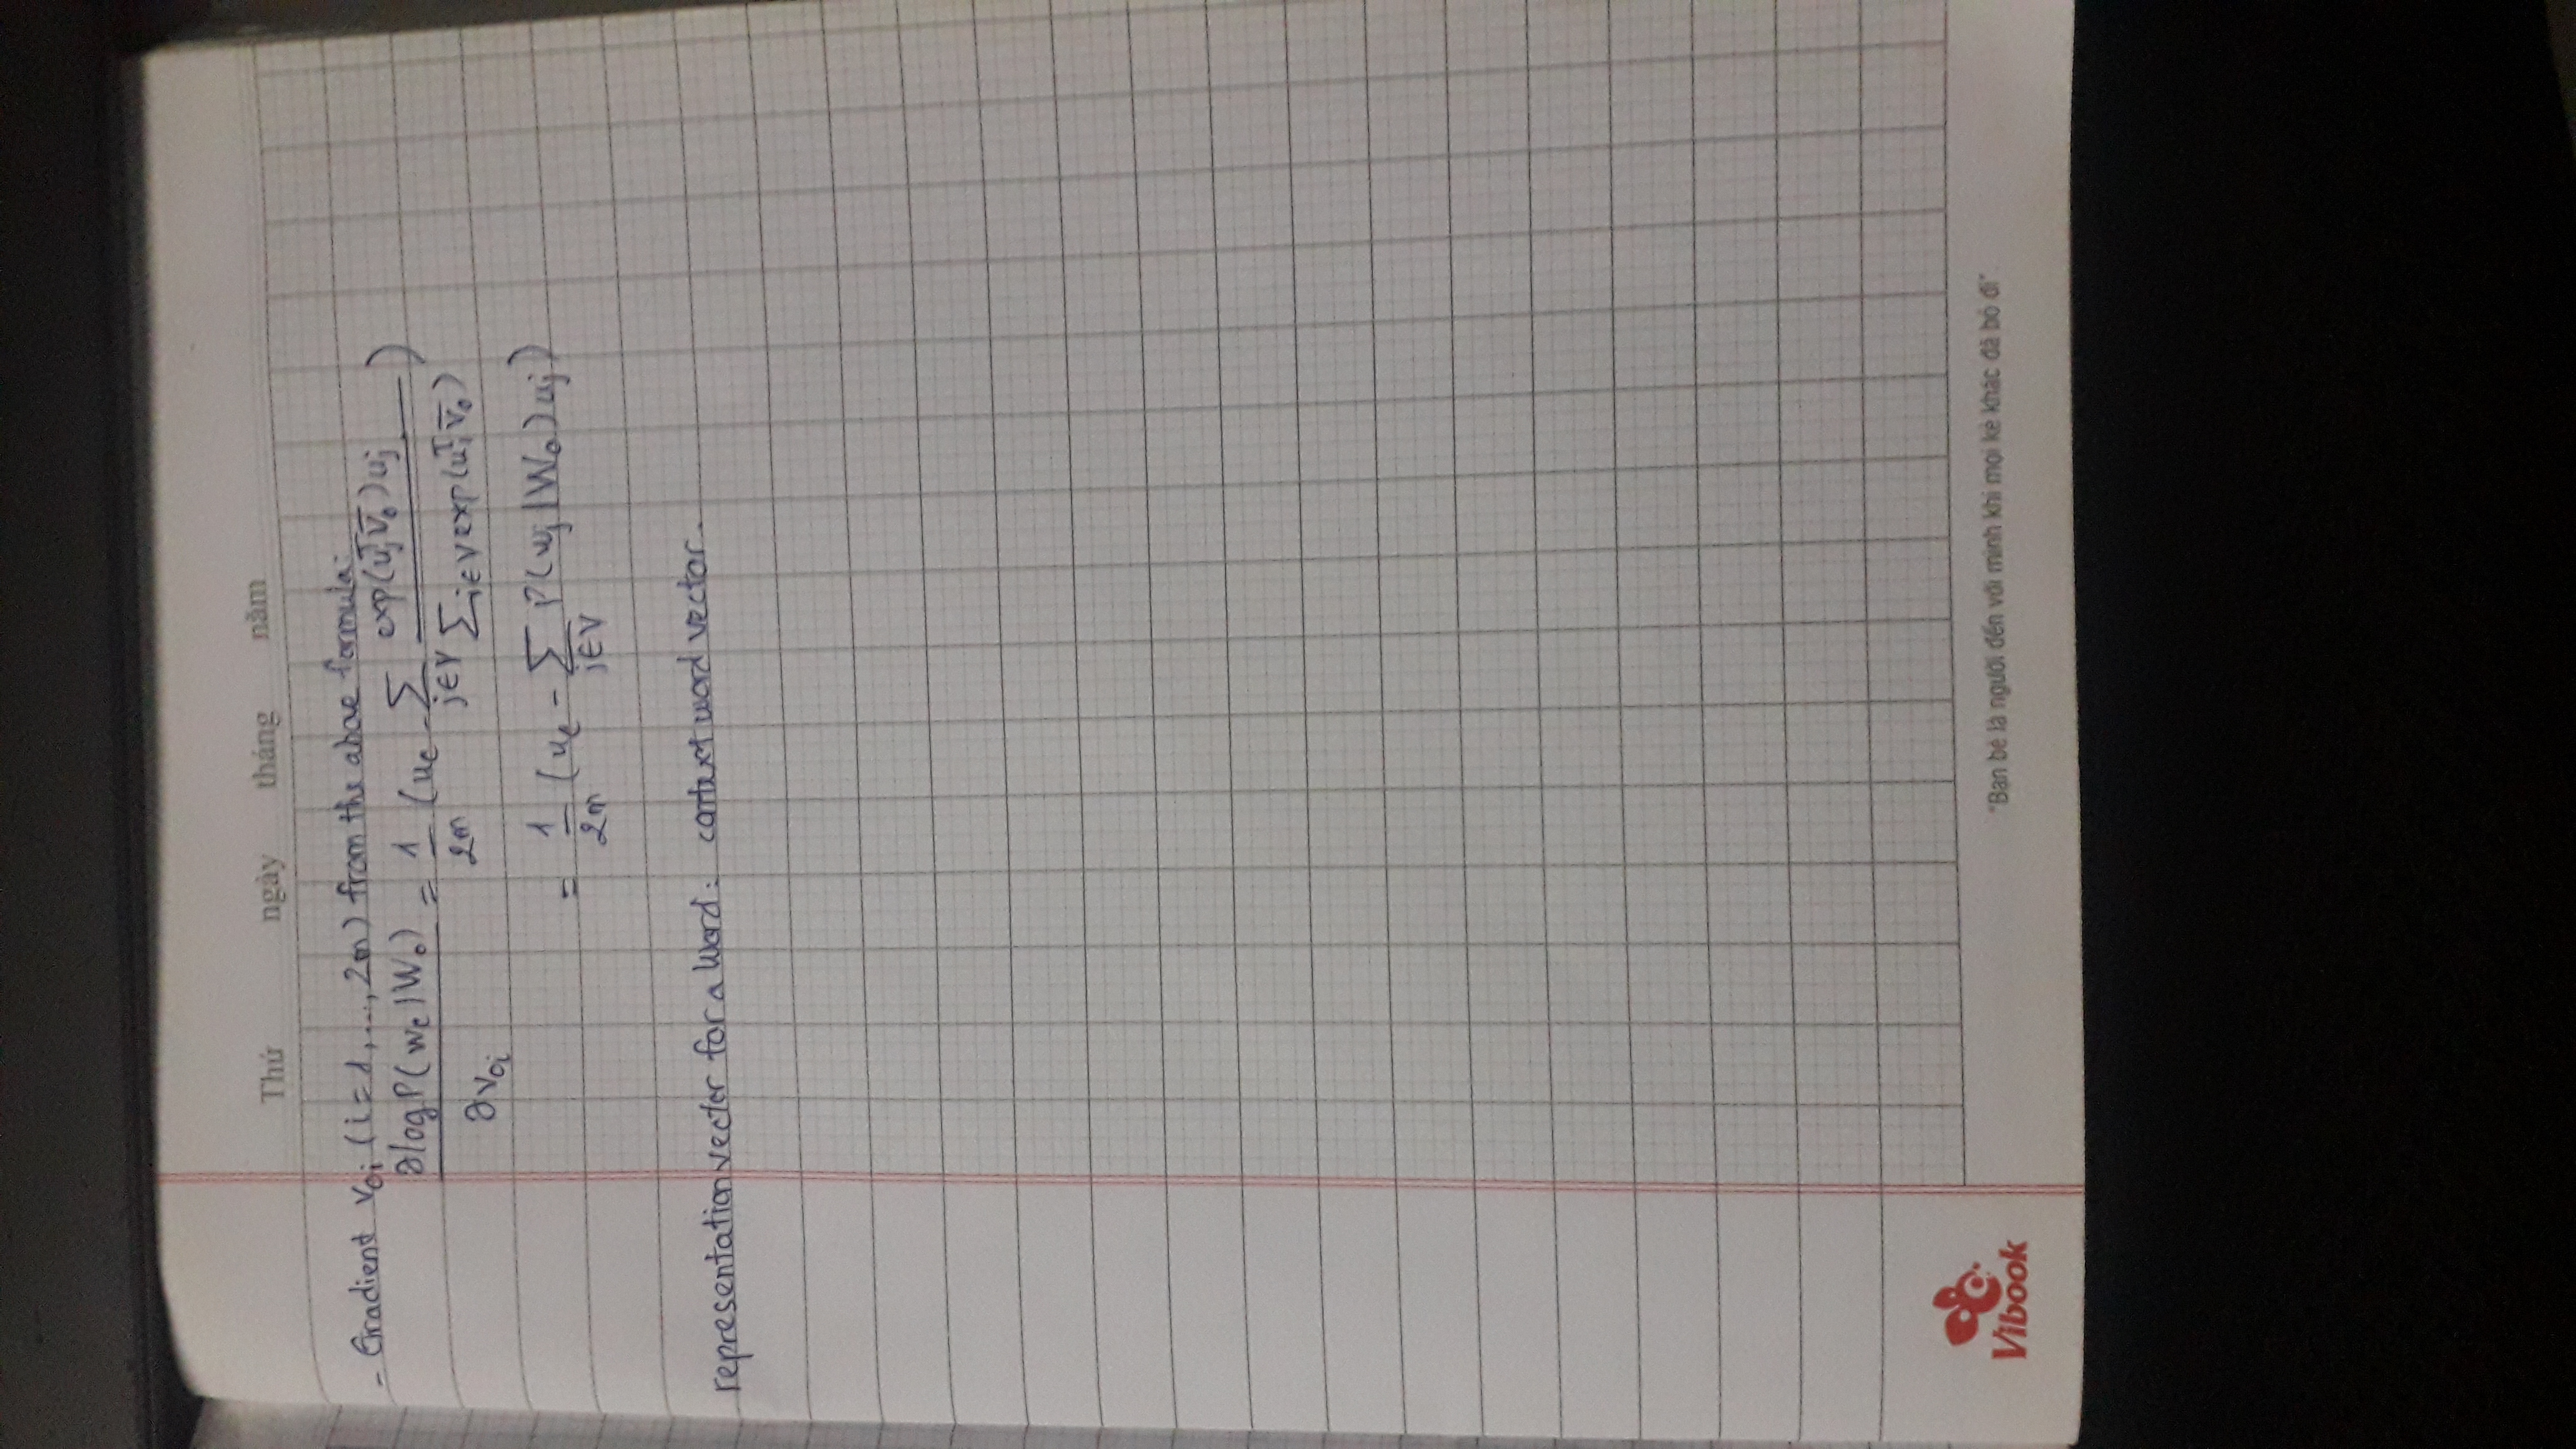 Thứ ngày tháng năm
- Gradient v_{oi} (i = 1, ..., 2m) from the above formula:
∂logP(w_c | W_o) / ∂v_{oi} = 1/2m (u_c - Σ_{j∈V} exp(u_j^T v̄_o) u_j / Σ_{i∈V} exp(u_i^T v̄_o))
= 1/2m (u_c - Σ_{j∈V} P(w_j | W_o) u_j)
representation vector for a word: context word vector.
Vibook
"Bạn bè là người đến với mình khi mọi kẻ khác đã bỏ đi"